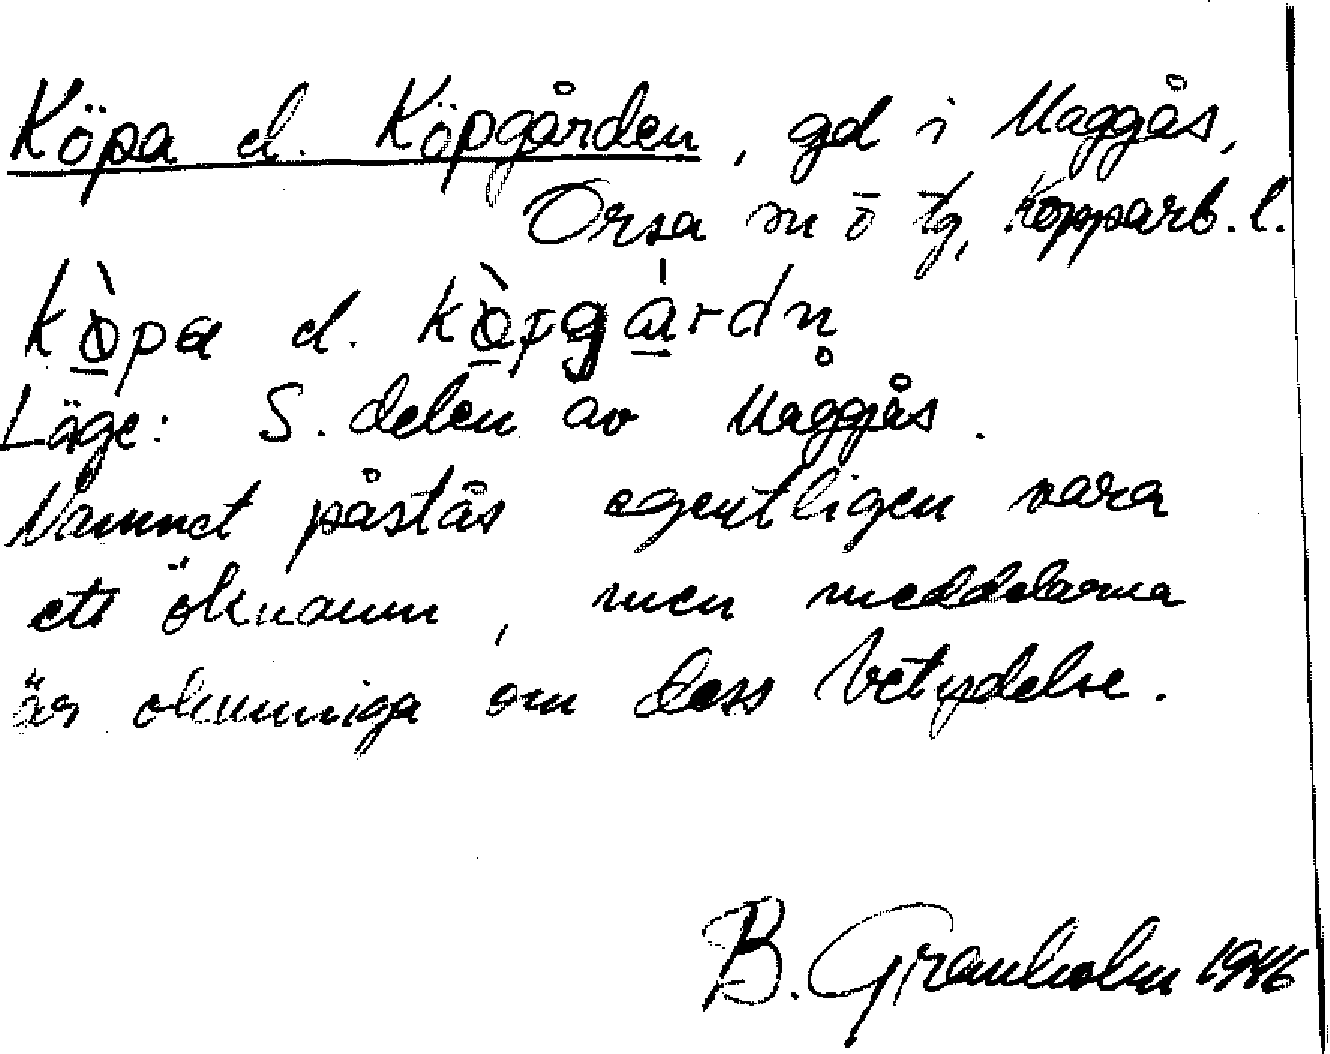 Köpa el. Köpgården, gd i Maggås,
Orsa sn o tg, Kopparb. l.
kö̀pa el. kö̀pgárdn̥
Läge: S. delen av Maggås.
Namnet påstås egentligen vara
ett öknamn, men meddelarna
är okunniga om dess betydelse.
B. Granholm 1946